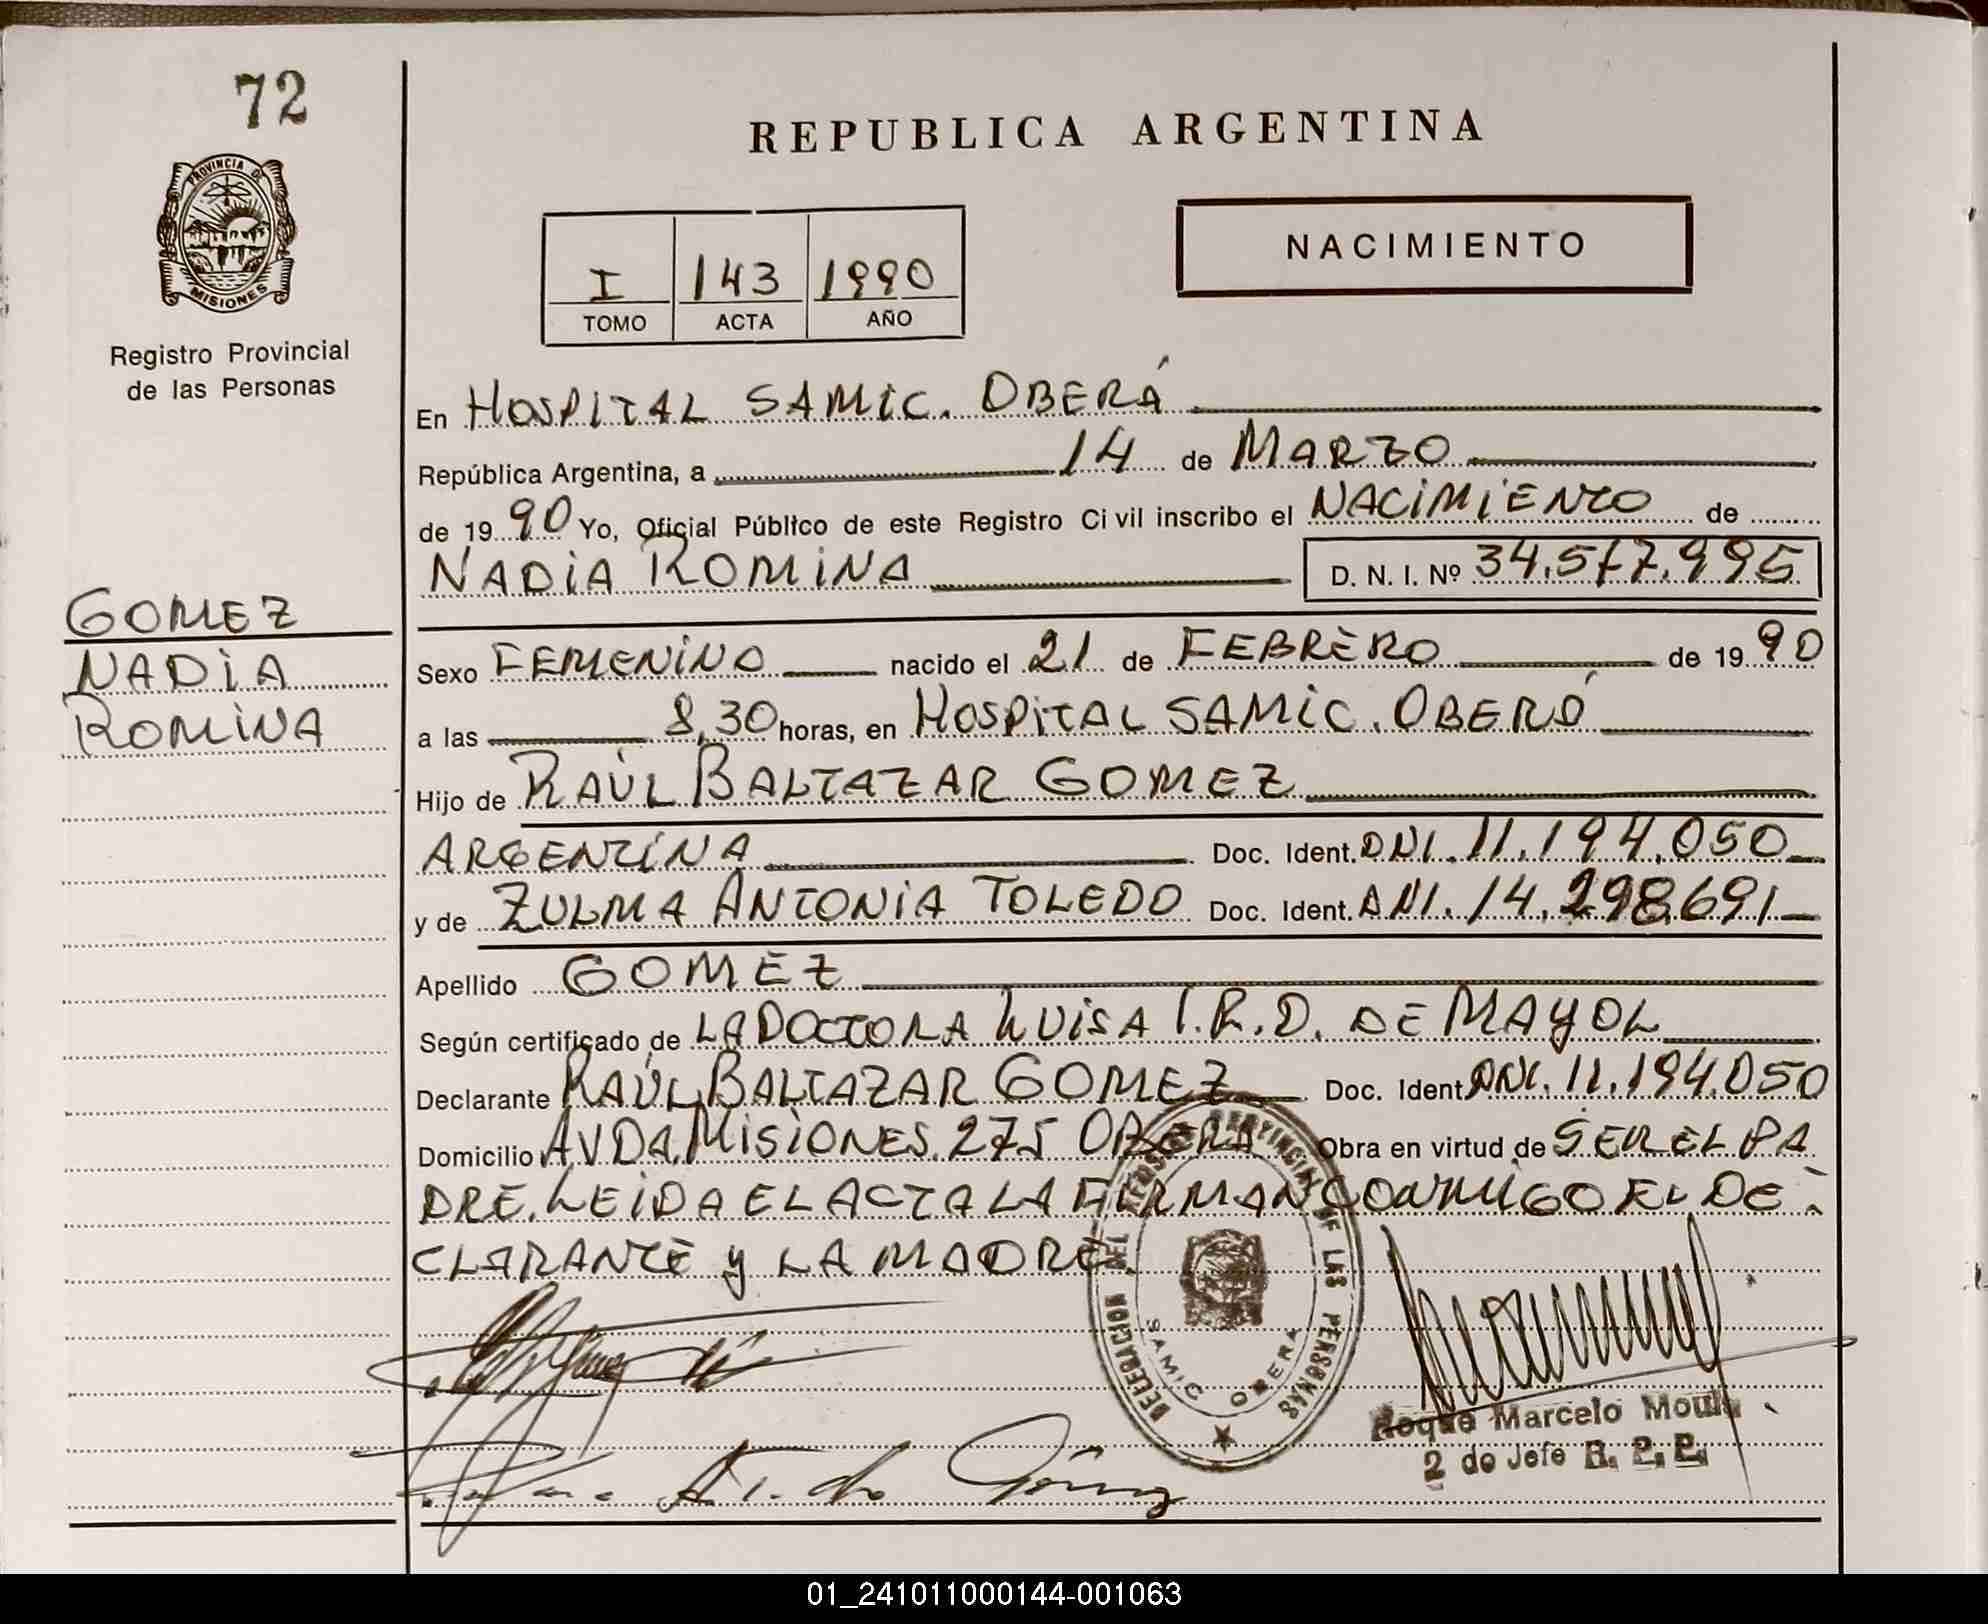 72
PROVINCIA DE
MISIONES
Registro Provincial
de las Personas
REPUBLICA ARGENTINA
I 143 1990
TOMO ACTA AÑO
NACIMIENTO
En HOSPITAL SAMIC. OBERÁ
República Argentina, a 14 de MARZO
de 1990 Yo, Oficial Público de este Registro Civil inscribo el NACIMIENTO de
NADIA ROMINA D. N. I. Nº 34.577.995
GOMEZ
NADIA
ROMINA
Sexo FEMENINO nacido el 21 de FEBRERO de 1990
a las 8,30 horas, en HOSPITAL SAMIC. OBERÁ
Hijo de RAÚL BALTAZAR GOMEZ
ARGENTINA Doc. Ident. DNI. 11.194.050
y de ZULMA ANTONIA TOLEDO Doc. Ident. DNI. 14.298.691
Apellido GOMEZ
Según certificado de LA DOCTORA LUISA I. R. D. DE MAYOL
Declarante RAÚL BALTAZAR GOMEZ Doc. Ident. DNI. 11.194.050
Domicilio AVDA. MISIONES. 275 OBERA Obra en virtud de SER EL PA
DRE. LEIDA EL ACTA LA FIRMAN CONMIGO EL DE-
CLARANTE y LA MADRE.
DELEGACION DEL REGISTRO PROVINCIAL DE LAS PERSONAS
SAMIC OBERA
Roque Marcelo
2 do Jefe R. P. P.
01_241011000144-001063